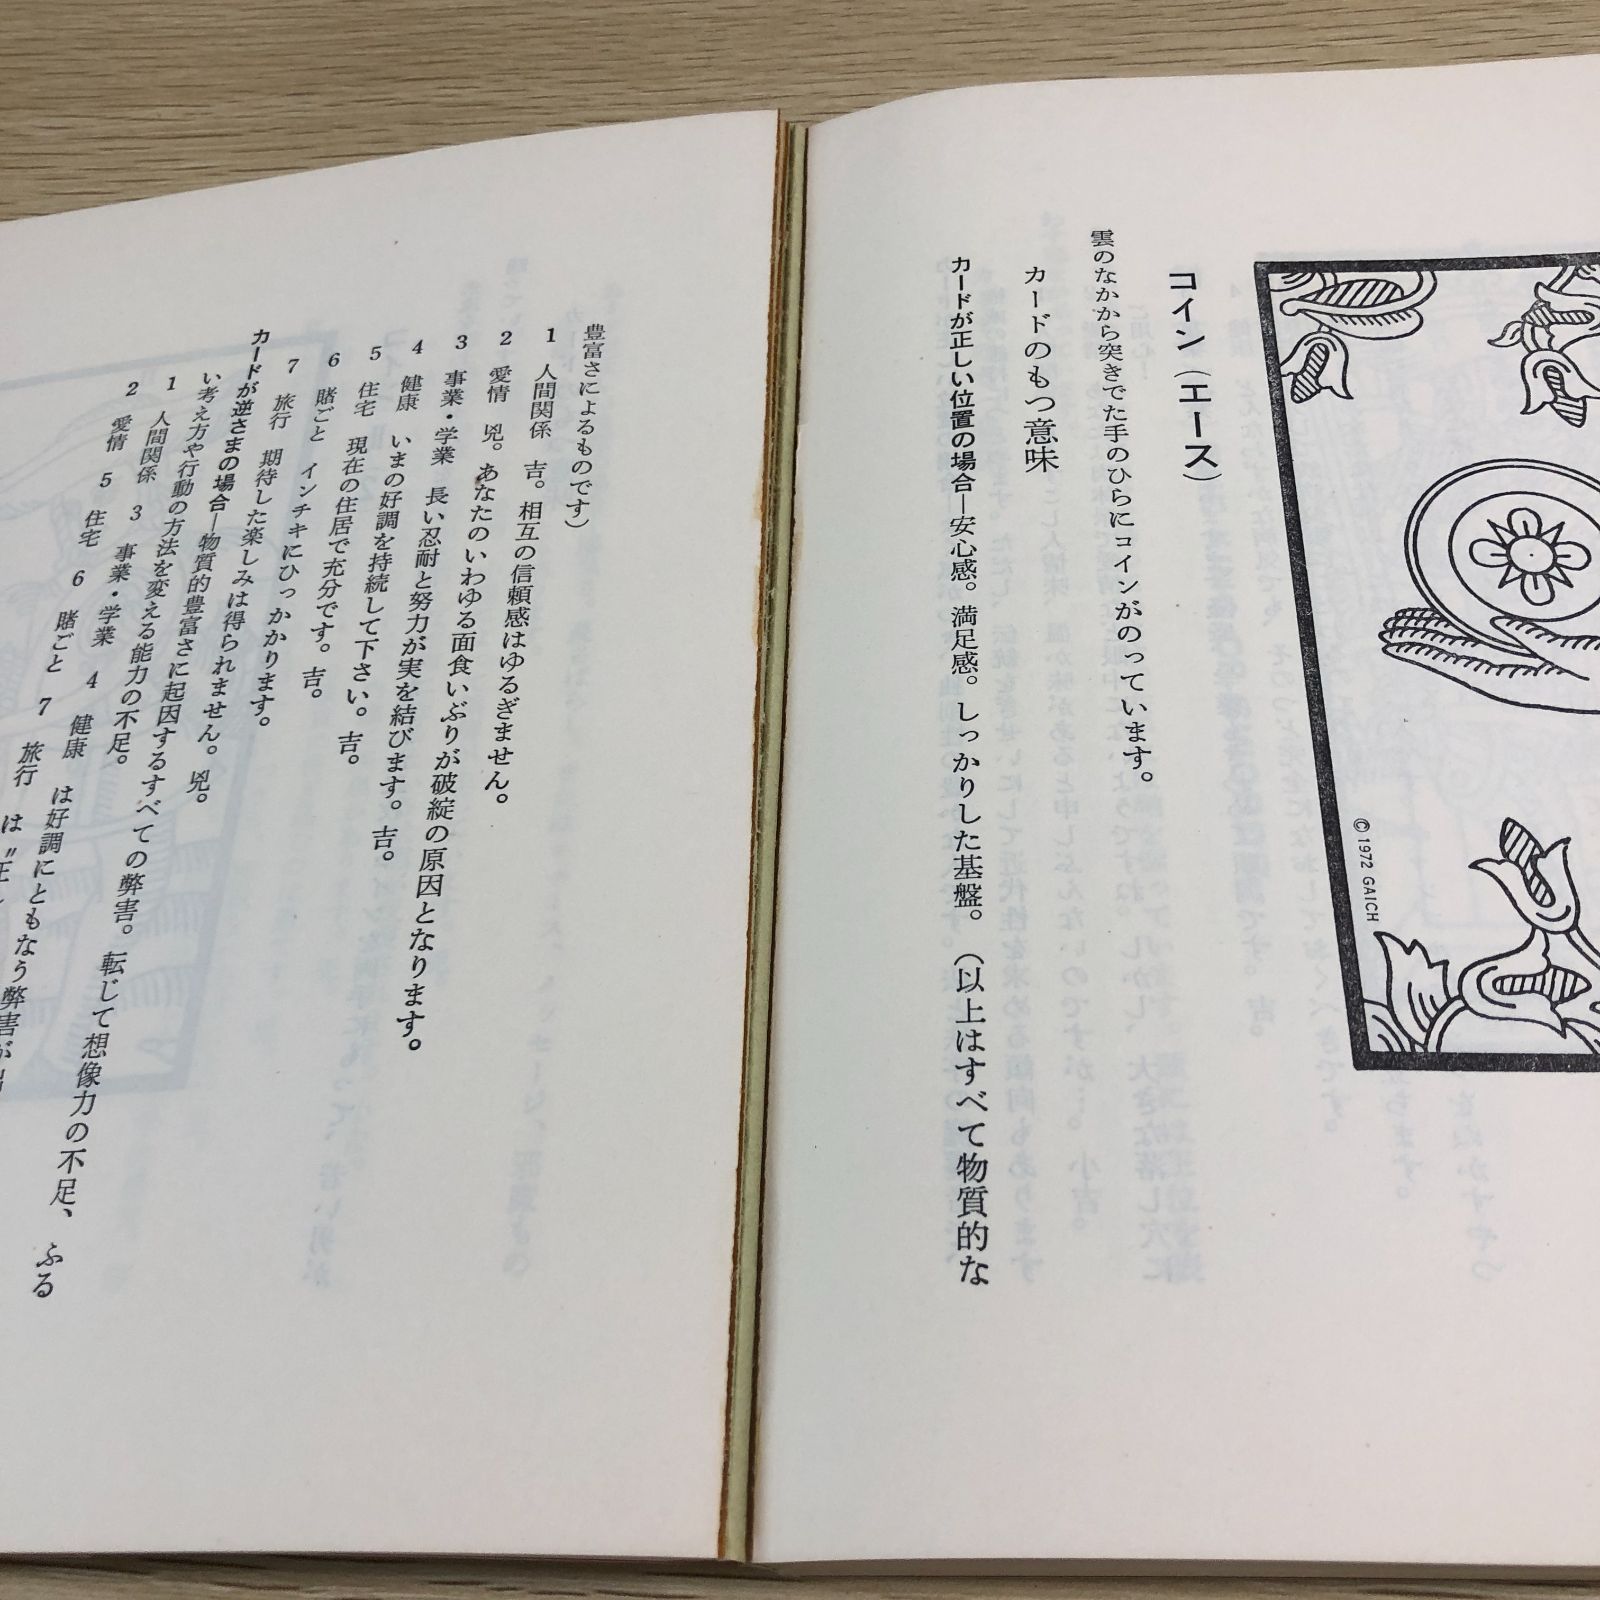 コイン（エース）
雲のなかから突きでた手のひらにコインがのっています。
カードのもつ意味
カードが正しい位置の場合―安心感。満足感。しっかりした基盤。（以上はすべて物質的な
©1972 GAICH
豊富さによるものです）
1 人間関係 吉。相互の信頼感はゆるぎません。
2 愛情 兇。あなたのいわゆる面食いぶりが破綻の原因となります。
3 事業・学業 長い忍耐と努力が実を結びます。吉。
4 健康 いまの好調を持続して下さい。吉。
5 住宅 現在の住居で充分です。吉。
6 賭ごと インチキにひっかかります。
7 旅行 期待した楽しみは得られません。兇。
カードが逆さまの場合―物質的豊富さに起因するすべての弊害。転じて想像力の不足、ふる
い考え方や行動の方法を変える能力の不足。
1 人間関係 3 事業・学業 4 健康 は好調にともなう弊害が
2 愛情 5 住宅 6 賭ごと 7 旅行 は